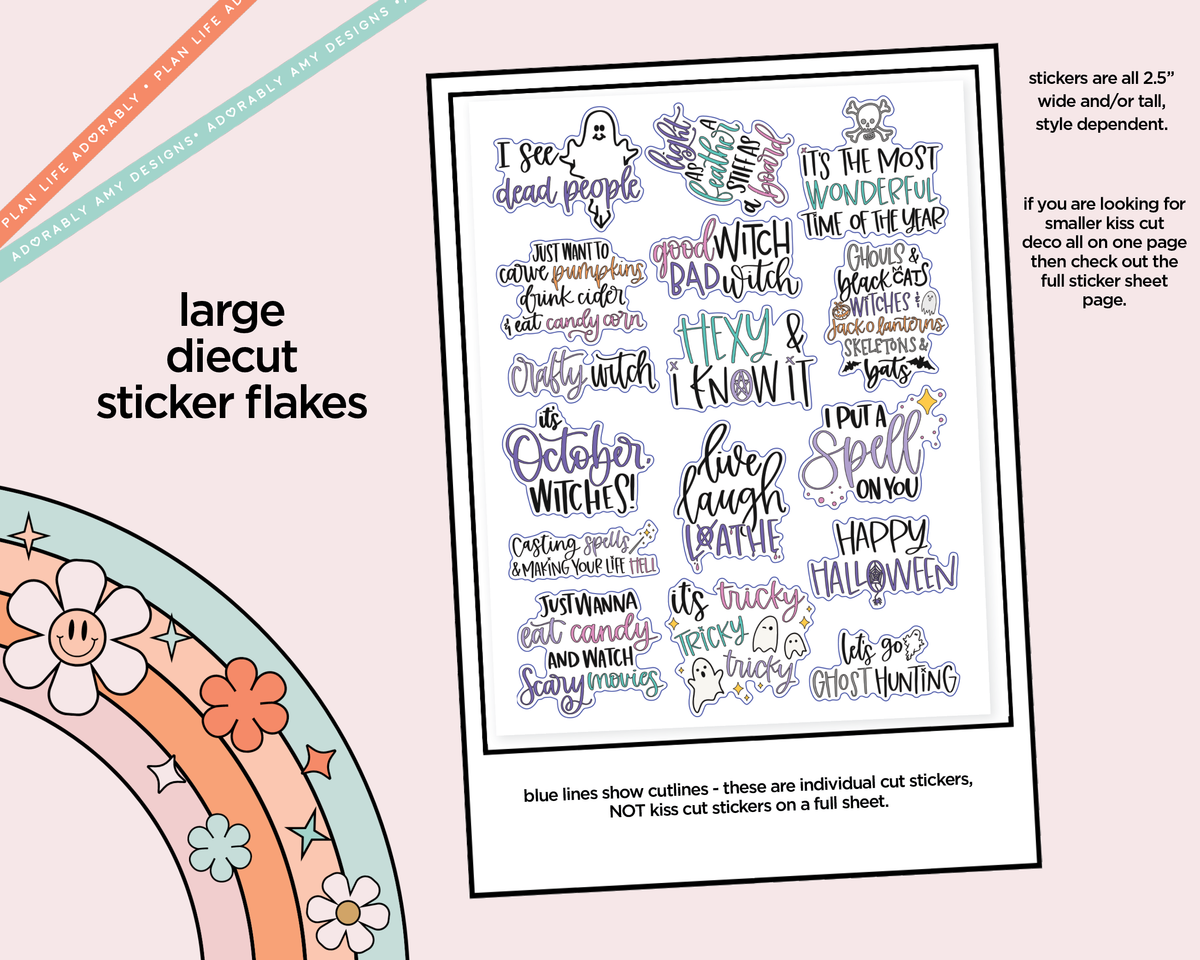 PLAN LIFE ADORABLY • PLAN LIFE AD
ADORABLY AMY DESIGNS • ADORABLY AMY DESIGNS •
large
diecut
sticker flakes
I see
dead people
light
AS A
feather
STIFF AS
a board
IT'S THE MOST
WONDERFUL
TIME OF THE YEAR
JUST WANT TO
carve pumpkins
drink cider
& eat candy corn
good WITCH
BAD witch
GHOULS &
black CATS
WITCHES &
Jack o lanterns
SKELETONS &
bats
HEXY &
I KNOW IT
Crafty witch
it's
October,
WITCHES!
live
laugh
LOATHE
I PUT A
Spell
ON YOU
Casting spells
& MAKING YOUR LIFE HELL
HAPPY
HALLOWEEN
JUST WANNA
eat candy
AND WATCH
Scary movies
it's tricky
TRICKY
tricky
let's go
GHOST HUNTING
blue lines show cutlines - these are individual cut stickers,
NOT kiss cut stickers on a full sheet.
stickers are all 2.5”
wide and/or tall,
style dependent.
if you are looking for
smaller kiss cut
deco all on one page
then check out the
full sticker sheet
page.